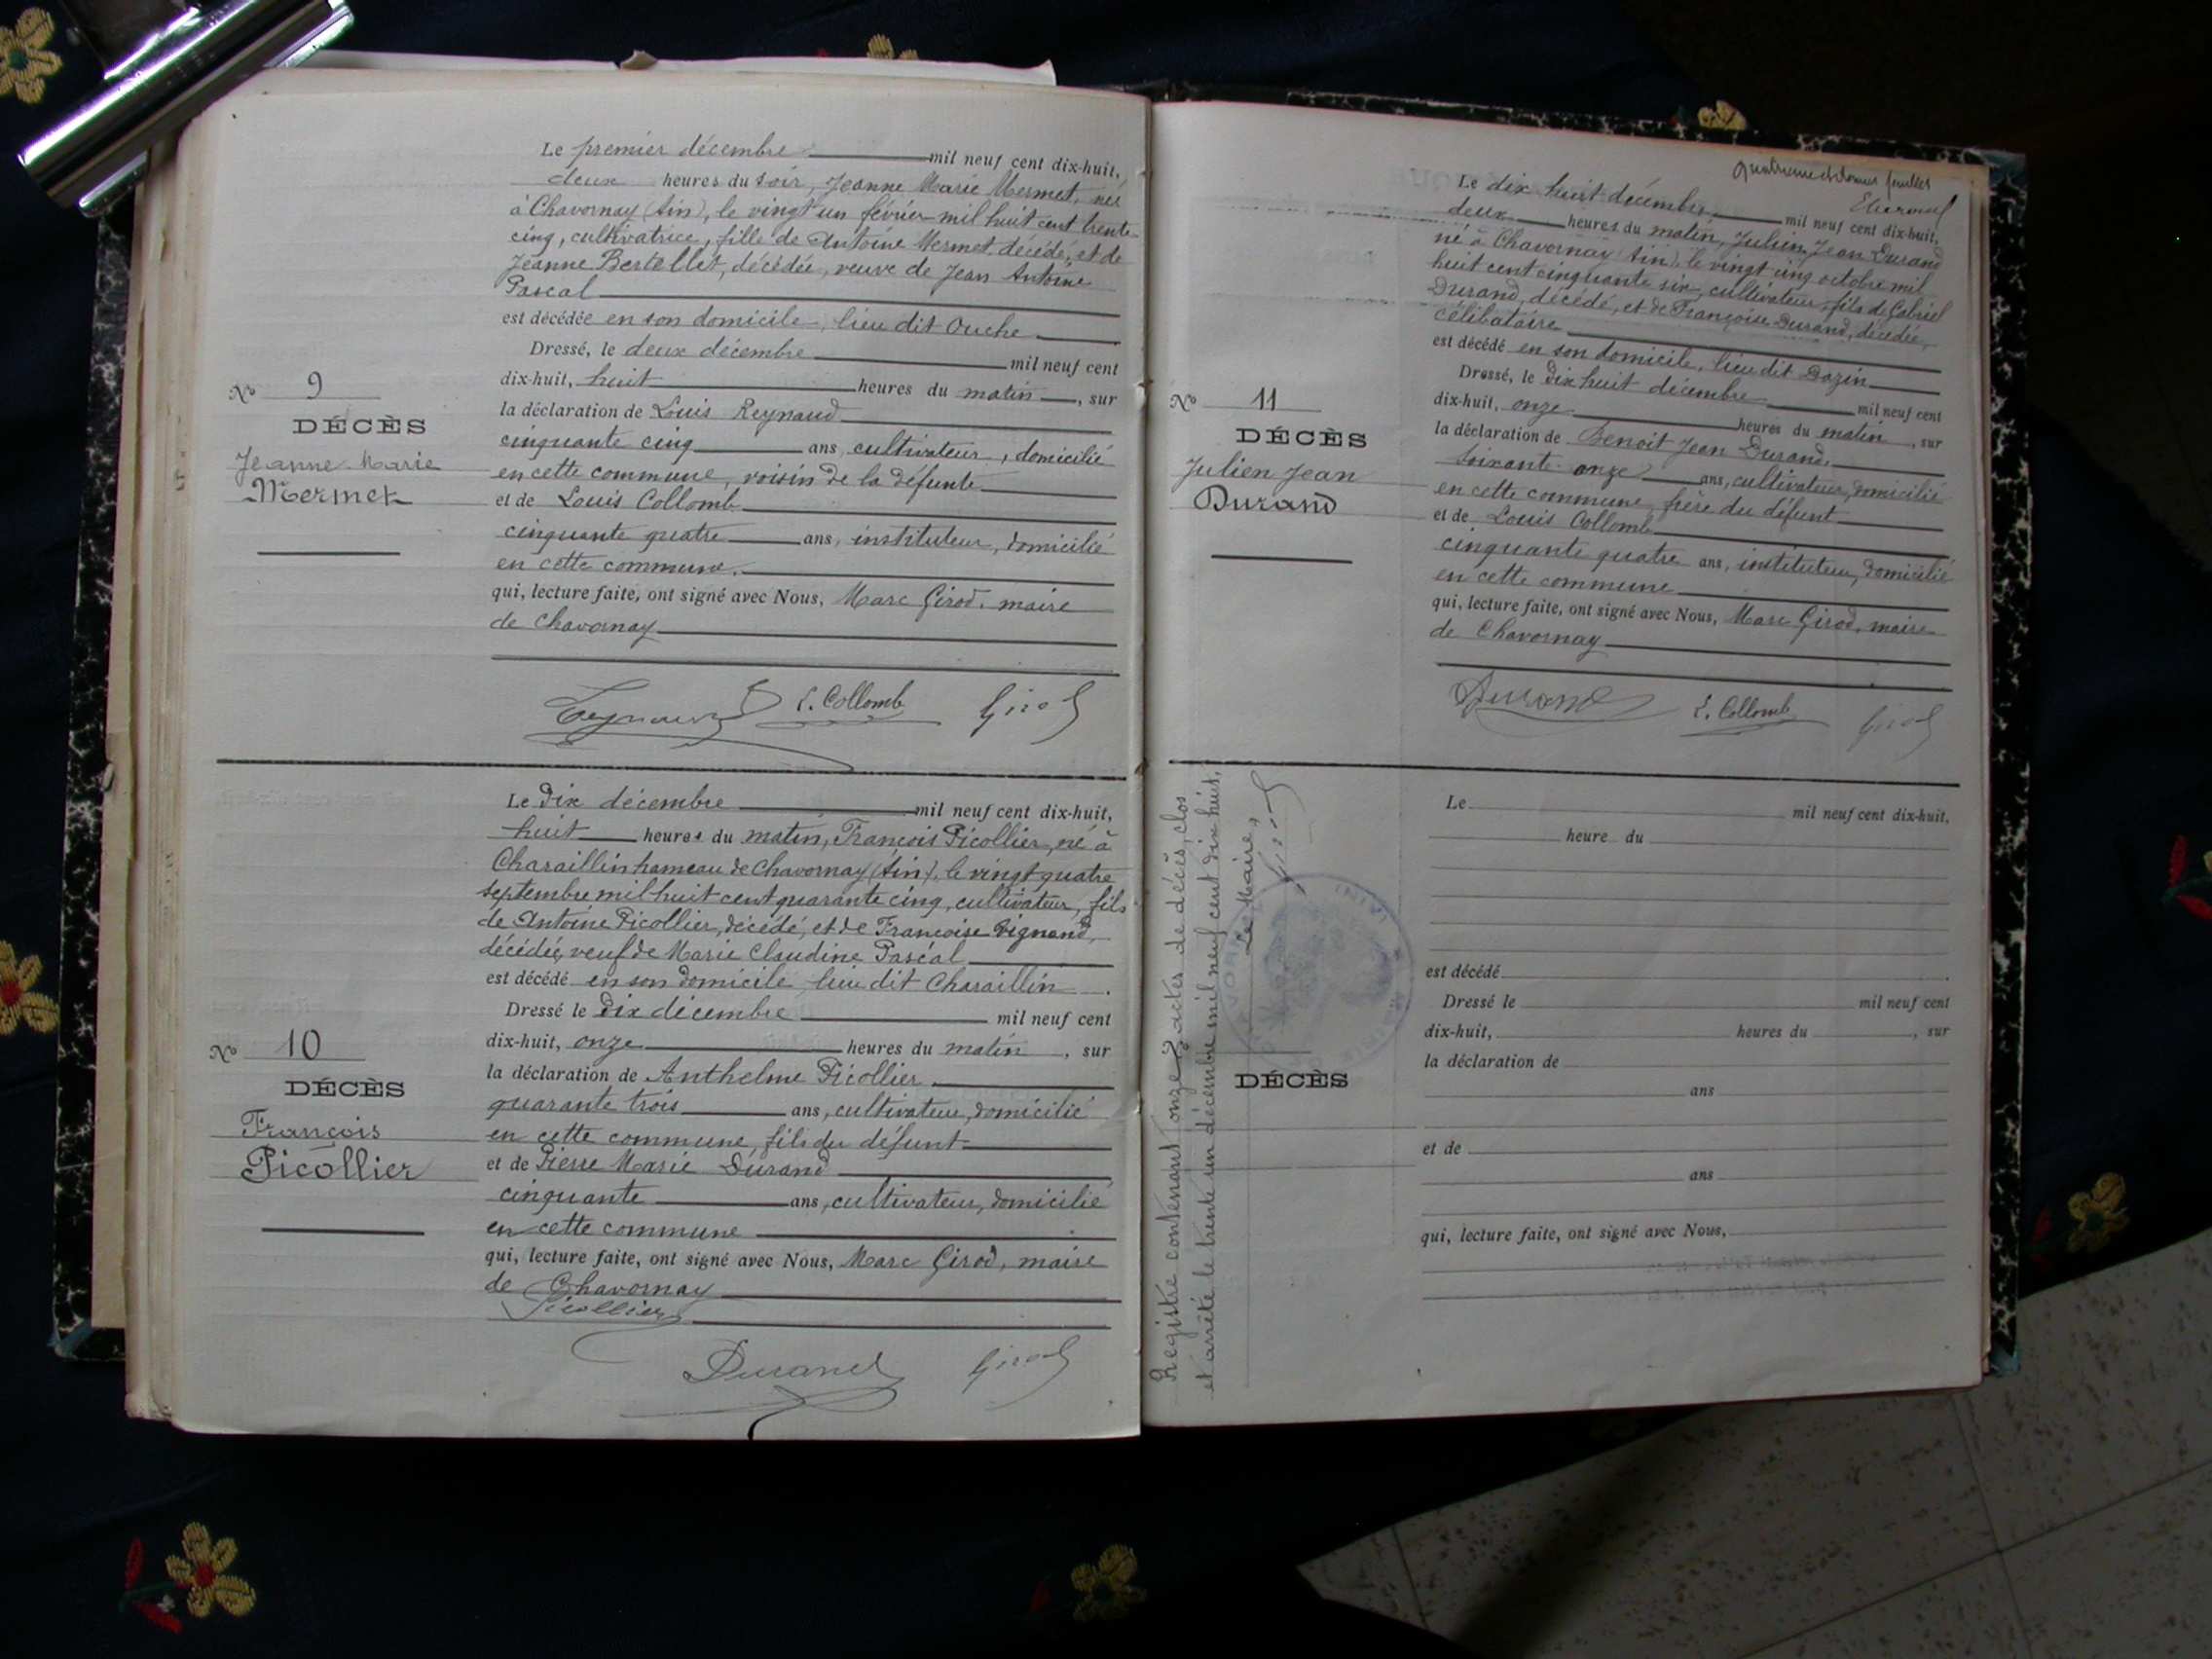 Le premier décembre mil neuf cent dix-huit,
deux heures du soir, Jeanne Marie Mermet, née
à Chavornay (Ain), le vingt un février mil huit cent trente
cinq, cultivatrice, fille de Antoine Mermet, décédé, et de
Jeanne Bertollet, décédée, veuve de Jean Antoine
Pascal
est décédée en son domicile, lieu dit Ouche
Dressé, le deux décembre mil neuf cent
dix-huit, huit heures du matin, sur
la déclaration de Louis Reynaud
cinquante cinq ans, cultivateur, domicilié
en cette commune, voisin de la défunte
et de Louis Collomb
cinquante quatre ans, instituteur, domicilié
en cette commune.
qui, lecture faite, ont signé avec Nous, Marc Girod, maire
de Chavornay
Reynaud L. Collomb Girod
No 9
DÉCÈS
Jeanne Marie
Mermet
Le dix décembre mil neuf cent dix-huit,
huit heures du matin, François Picollier, né à
Charaillin hameau de Chavornay (Ain), le vingt quatre
septembre mil huit cent quarante cinq, cultivateur, fils
de Antoine Picollier, décédé, et de Françoise Vignand,
décédée, veuf de Marie Claudine Pascal
est décédé en son domicile, lieu dit Charaillin.
Dressé le dix décembre mil neuf cent
dix-huit, onze heures du matin, sur
la déclaration de Anthelme Picollier
quarante trois ans, cultivateur, domicilié
en cette commune, fils du défunt
et de Pierre Marie Durand
cinquante ans, cultivateur, domicilié
en cette commune
qui, lecture faite, ont signé avec Nous, Marc Girod, maire
de Chavornay
Picollier
Durand Girod
No 10
DÉCÈS
François
Picollier
Quatrième et dernier feuillet
Le dix huit décembre mil neuf cent dix-huit,
deux heures du matin, Julien Jean Durand
né à Chavornay (Ain), le vingt cinq octobre mil
huit cent cinquante six, cultivateur, fils de Gabriel
Durand, décédé, et de Françoise Durand, décédée,
célibataire
est décédé en son domicile, lieu dit Dazin
Dressé, le dix huit décembre mil neuf cent
dix-huit, onze heures du matin, sur
la déclaration de Benoit Jean Durand,
soixante onze ans, cultivateur, domicilié
en cette commune, frère du défunt
et de Louis Collomb
cinquante quatre ans, instituteur, domicilié
en cette commune
qui, lecture faite, ont signé avec Nous, Marc Girod, maire
de Chavornay
Durand L. Collomb Girod
No 11
DÉCÈS
Julien Jean
Durand
Registre contenant onze actes de décès, clos
et arrêté le trente un décembre mil neuf cent dix huit.
Le Maire,
Girod
DÉCÈS
Le mil neuf cent dix-huit,
heure du
est décédé
Dressé le mil neuf cent
dix-huit, heures du , sur
la déclaration de
ans
et de
ans
qui, lecture faite, ont signé avec Nous,